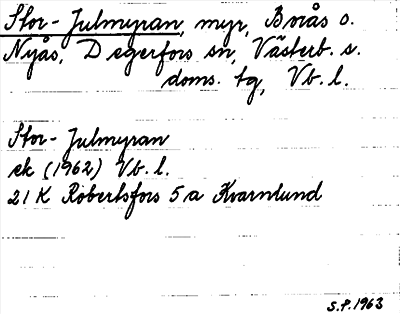 Stor-Julmyran, myr, Borås o.
Nyås, Degerfors sn, Västerb. s.
doms. tg, Vb. l.
Stor-Julmyran
ek (1962) Vb. l.
21 K Robertsfors 5 a Kvarnlund
S.P. 1963